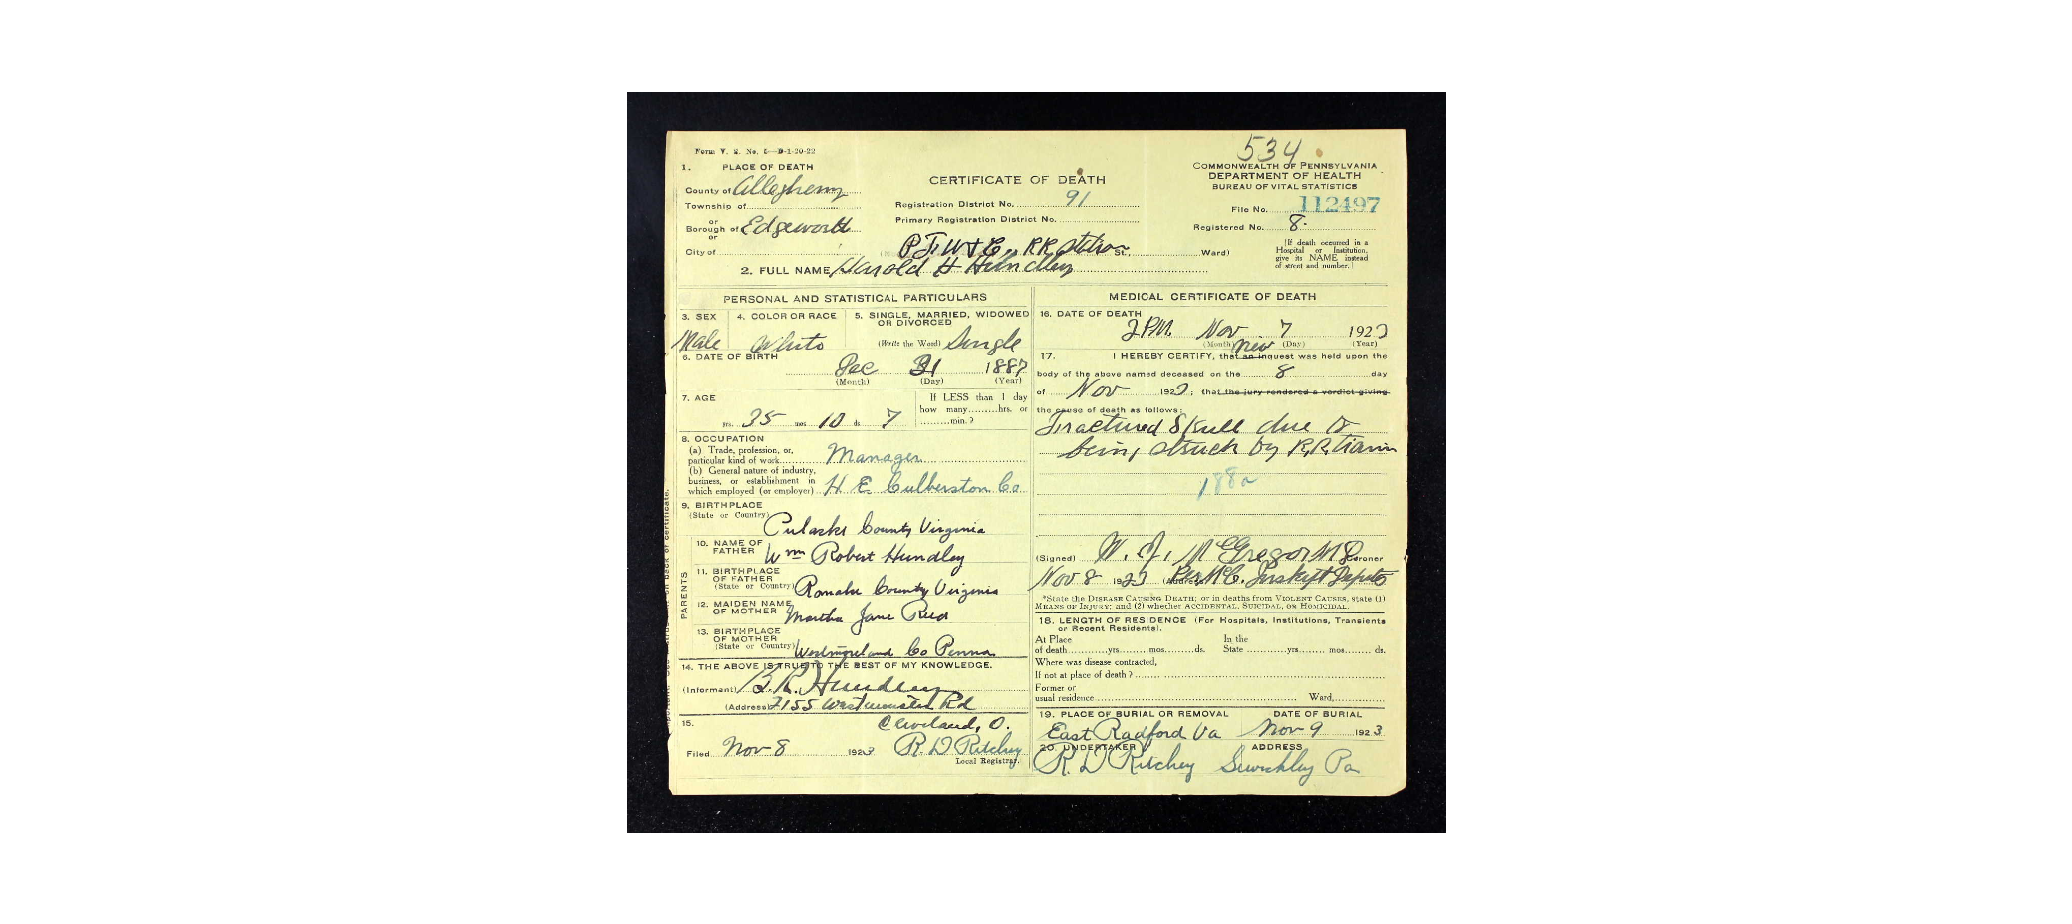 Form V. S. No. 5—D-1-20-22
534
1. PLACE OF DEATH
County of Allegheny
Township of
or
Borough of Edgeworth
or
City of
CERTIFICATE OF DEATH
Registration District No. 91
Primary Registration District No.
P. Ft. W & C. RR Station St., Ward)
COMMONWEALTH OF PENNSYLVANIA
DEPARTMENT OF HEALTH
BUREAU OF VITAL STATISTICS
File No. 112497
Registered No. 8.
(If death occurred in a
Hospital or Institution,
give its NAME instead
of street and number.)
2. FULL NAME Harold H Hundley
PERSONAL AND STATISTICAL PARTICULARS
3. SEX
Male
4. COLOR OR RACE
White
5. SINGLE, MARRIED, WIDOWED
OR DIVORCED
(Write the Word) Single
6. DATE OF BIRTH
Dec 31 1887
(Month) (Day) (Year)
7. AGE
yrs. 35 mos 10 ds 7
If LESS than 1 day
how many hrs. or
min.?
8. OCCUPATION
(a) Trade, profession, or,
particular kind of work Manager
(b) General nature of industry,
business, or establishment in
which employed (or employer) H E Culberston Co
9. BIRTHPLACE
(State or Country)
Pulaski County Virginia
PARENTS
10. NAME OF
FATHER Wm Robert Hundley
11. BIRTHPLACE
OF FATHER
(State or Country) County Virginia
12. MAIDEN NAME
OF MOTHER Martha Jane Reed
13. BIRTHPLACE
OF MOTHER
(State or Country) Westmoreland Co Penna
14. THE ABOVE IS TRUE TO THE BEST OF MY KNOWLEDGE.
(Informant) B. R. Hundley
(Address) 2155 Westminster Rd
Cleveland, O.
15.
Filed Nov 8 1923 R. D Ritchey
Local Registrar.
MEDICAL CERTIFICATE OF DEATH
16. DATE OF DEATH
2 P.M. Nov 7 1923
(Month) (Day) (Year)
view
17. I HEREBY CERTIFY, that an inquest was held upon the
body of the above named deceased on the 8 day
of Nov 1923; that the jury rendered a verdict giving
the cause of death as follows:
Fractured Skull due to
being struck by R.R. train
188a
(Signed) W. J. McGregor M D Coroner
Nov 8 1923 (Address) Per Deputy
*State the DISEASE CAUSING DEATH; or in deaths from VIOLENT CAUSES, state (1)
MEANS OF INJURY; and (2) whether ACCIDENTAL, SUICIDAL, OR HOMICIDAL.
18. LENGTH OF RESIDENCE (For Hospitals, Institutions, Transients
or Recent Residents).
At Place In the
of death yrs. mos. ds. State yrs. mos. ds.
Where was disease contracted,
If not at place of death?
Former or
usual residence Ward,
19. PLACE OF BURIAL OR REMOVAL DATE OF BURIAL
East Radford Va Nov 9 1923
20. UNDERTAKER ADDRESS
R. D Ritchey Sewickley Pa